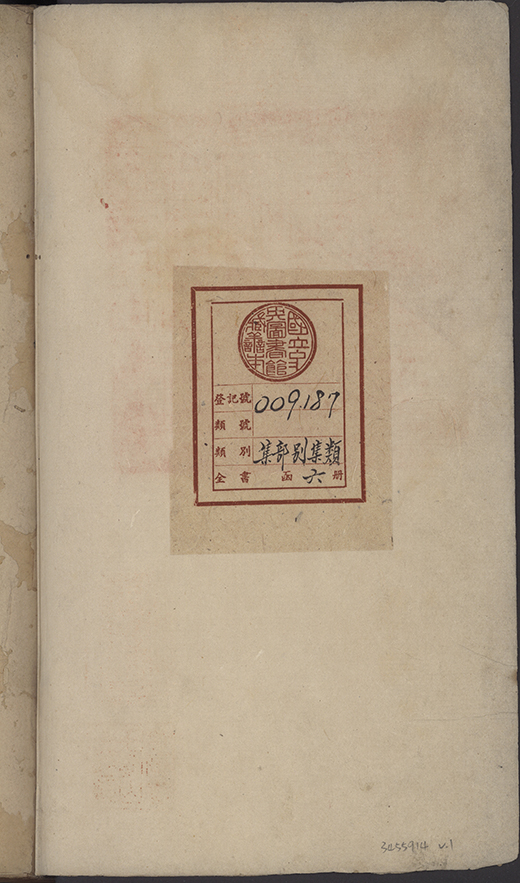 國立中
央圖書館
藏善本
登記號 009,187
類號
類別 集部別集類
全書 函 六 册
3455914 v.1